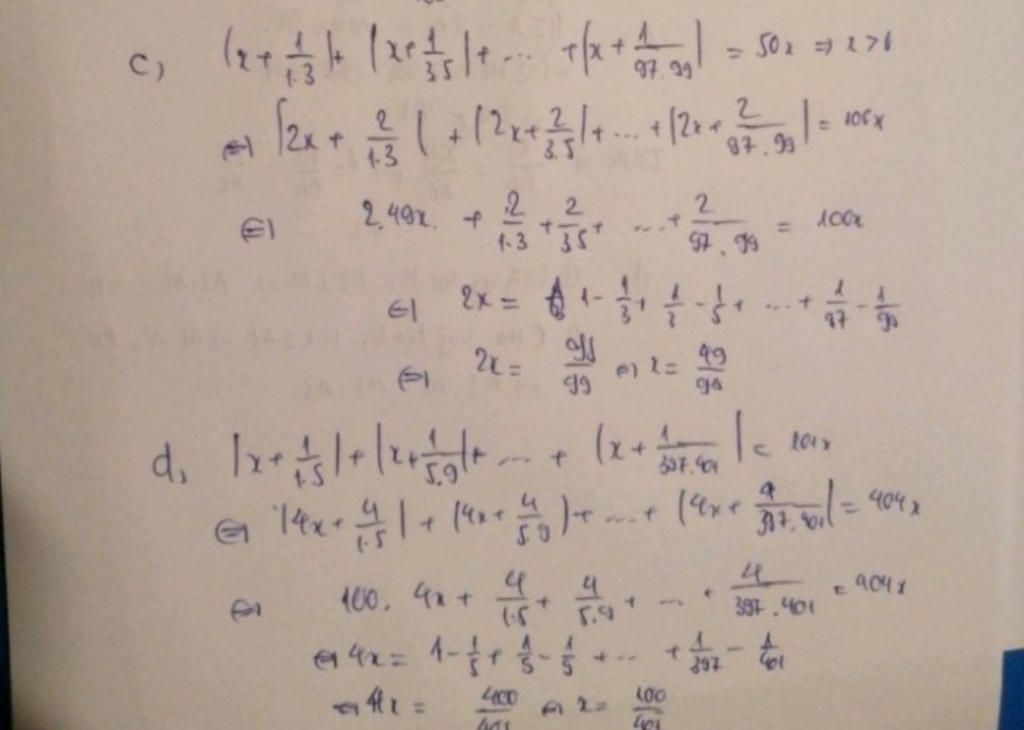 c, |x + 1/1.3| + |x + 1/3.5| + ... + |x + 1/97.99| = 50x ⇒ x > 0
⇔ |2x + 2/1.3| + |2x + 2/3.5| + ... + |2x + 2/97.99| = 100x
⇔ 2.49x + 2/1.3 + 2/3.5 + ... + 2/97.99 = 100x
⇔ 2x = 1 - 1/3 + 1/3 - 1/5 + ... + 1/97 - 1/99
⇔ 2x = 98/99 ⇔ x = 49/99
d, |x + 1/1.5| + |x + 1/5.9| + ... + |x + 1/397.401| = 101x
⇔ |4x + 4/1.5| + |4x + 4/5.9| + ... + |4x + 4/397.401| = 404x
⇔ 100. 4x + 4/1.5 + 4/5.9 + ... + 4/397.401 = 404x
⇔ 4x = 1 - 1/5 + 1/5 - 1/5 + ... + 1/397 - 1/401
⇔ 4x = 400/401 ⇔ x = 100/401